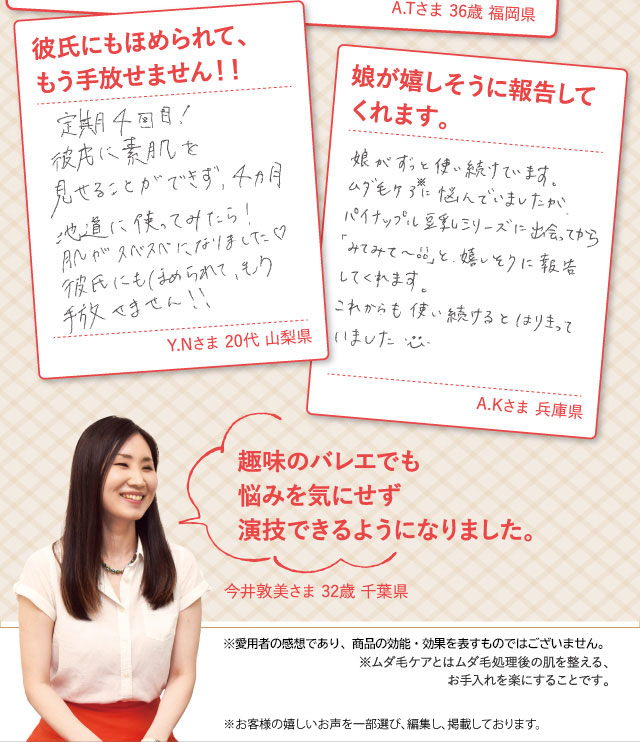 A.Tさま 36歳 福岡県
彼氏にもほめられて、
もう手放せません！！
定期4回目！
彼氏に素肌を
見せることができず、4ヵ月
地道に使ってみたら！
肌がスベスベになりました♡
彼氏にもほめられて、もう
手放せません！！
Y.Nさま 20代 山梨県
娘が嬉しそうに報告して
くれます。
娘がずっと使い続けています。
ムダ毛ケア※に悩んでいましたが、
パイナップル豆乳シリーズに出会ってから
「みてみて〜」と、嬉しそうに報告
してくれます。
これからも使い続けるとはりきって
いました
A.Kさま 兵庫県
趣味のバレエでも
悩みを気にせず
演技できるようになりました。
今井敦美さま 32歳 千葉県
※愛用者の感想であり、商品の効能・効果を表すものではございません。
※ムダ毛ケアとはムダ毛処理後の肌を整える、
お手入れを楽にすることです。
※お客様の嬉しいお声を一部選び、編集し、掲載しております。